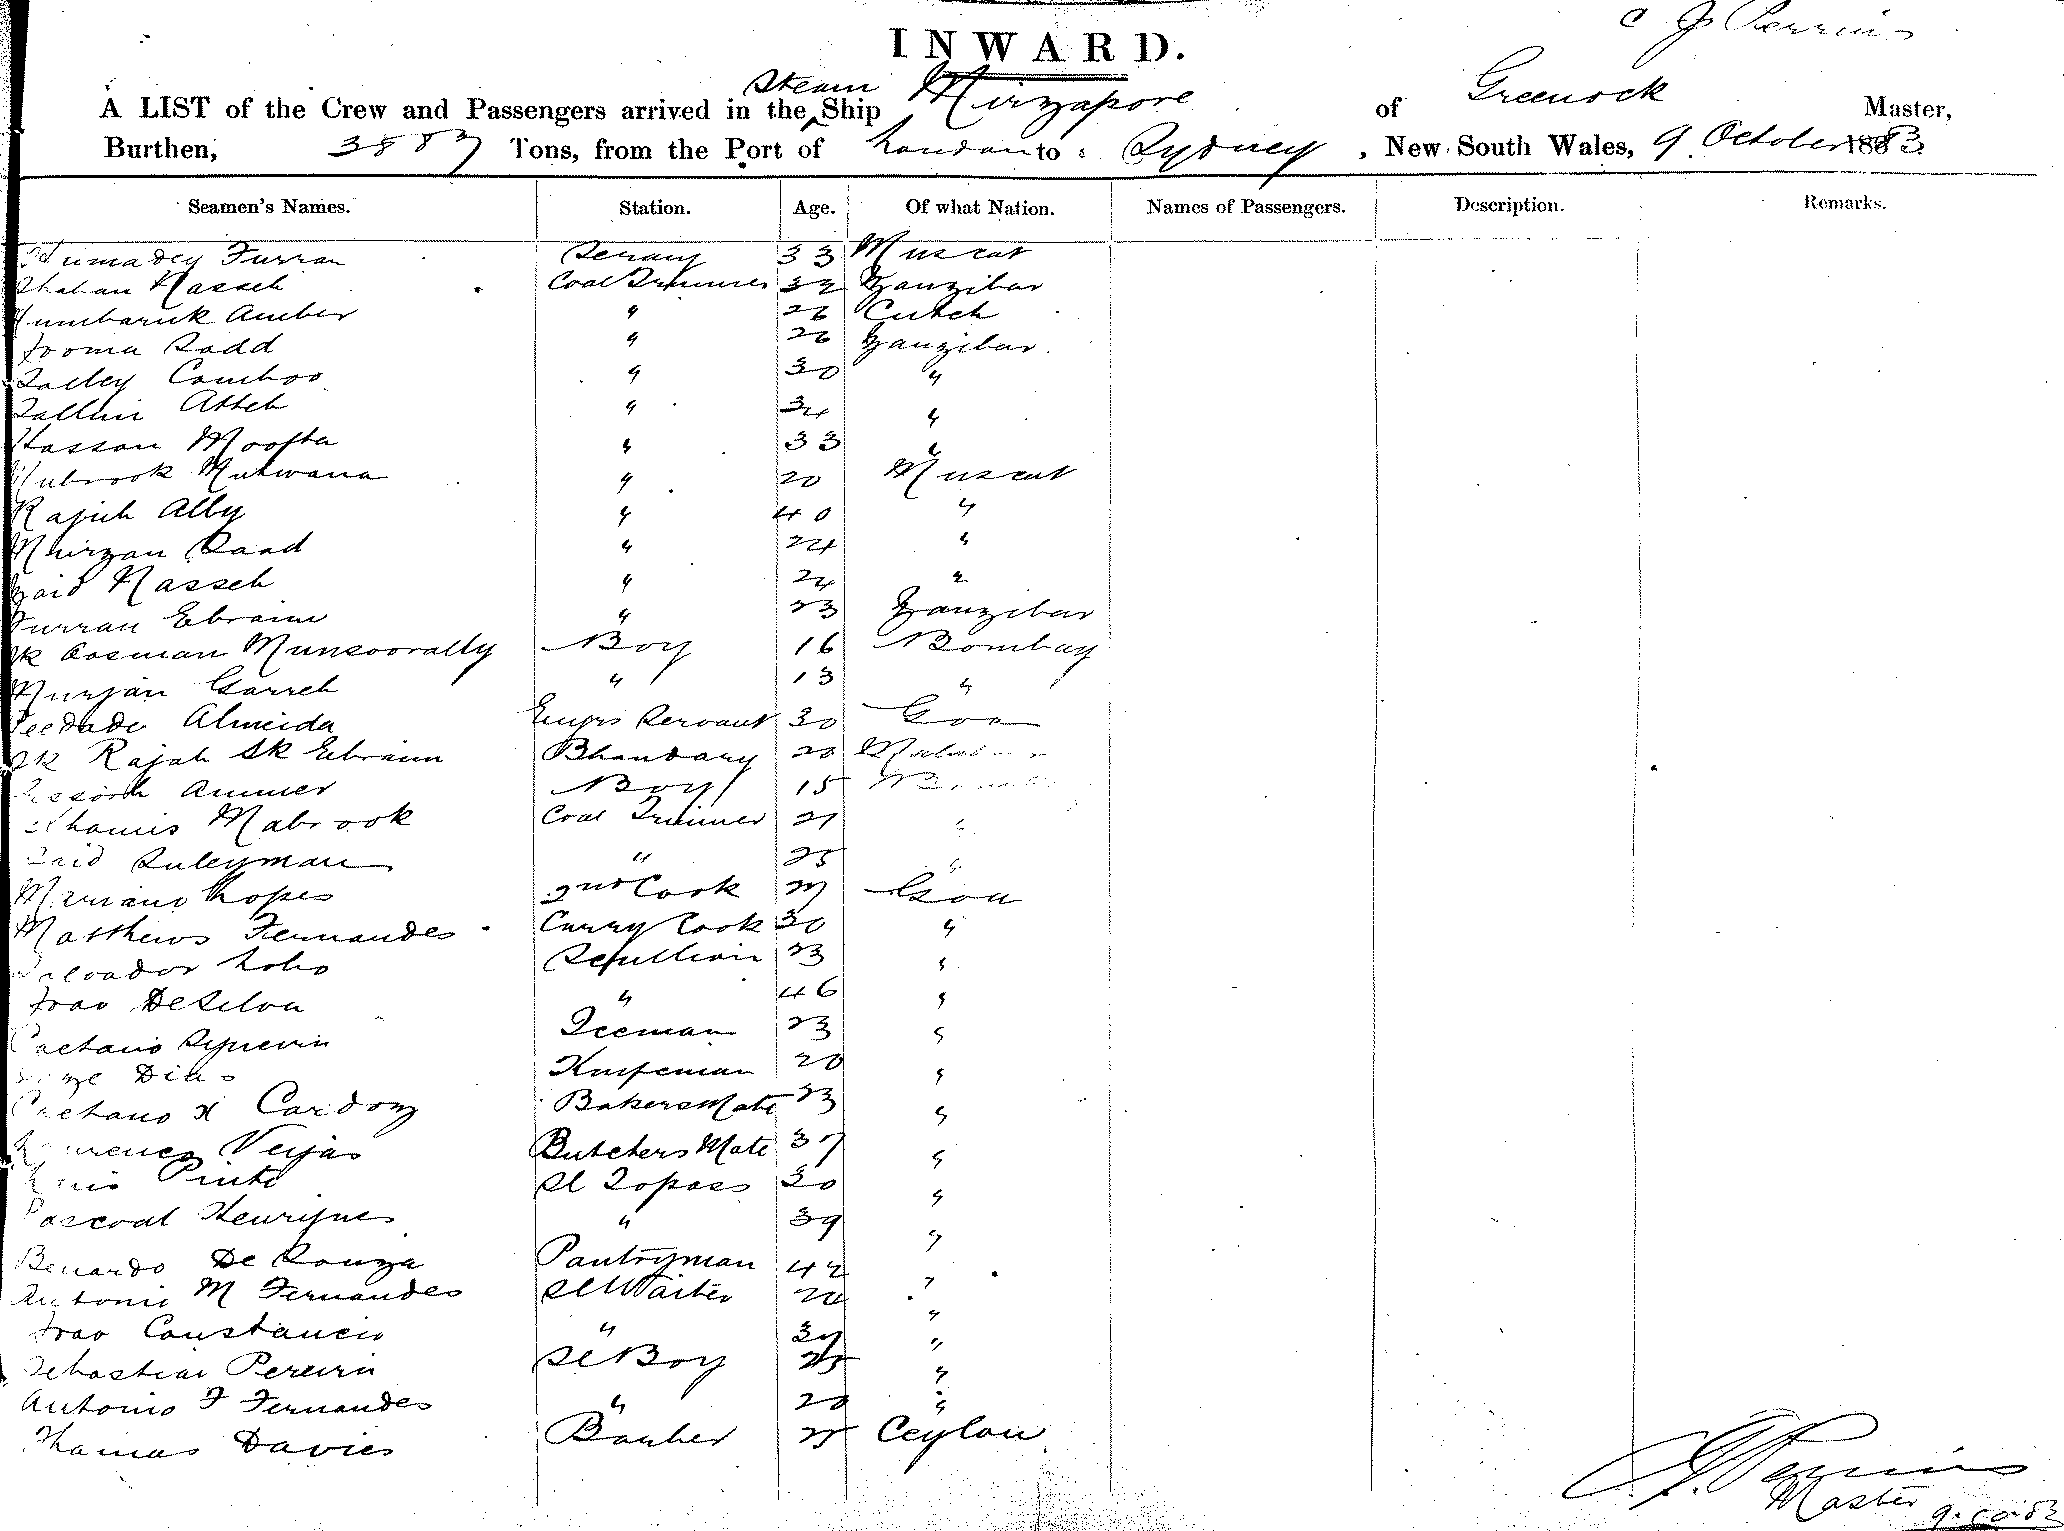 C J Perrins
INWARD.
A LIST of the Crew and Passengers arrived in the Steam Ship Mirzapore of Greenock Master,
Burthen, 3887 Tons, from the Port of London to Sydney, New South Wales, 9 October 1883
Seamen's Names. Station. Age. Of what Nation. Names of Passengers. Description. Remarks.
Furran 33 Muscat
Nasseh Coal Trimmer 32 Zanzibar
Mumbaruk Amber " 26 Cutch
Jooma Sadd " 26 Zanzibar
Comboo " 30 "
Atteh " 34 "
Hassan Moofta " 33 "
Mubrook Mutwana " 20 Muscat
Rajub Ally " 40 "
Mhirzan Saad " 24 "
Zaid Nasseh " 24 "
Furran Ebraim " 23 Zanzibar
Sk Oosman Munsoorally Boy 16 Bombay
Murjan Garreh " 13 "
Peedade Almeida Engrs Servant 30 Goa
Sk Rajah Sk Ebraim Bhandary 20
Ammer Boy 15
Khamis Mabrook Coal Trimmer 21 "
Said Suleyman " 25 "
Mariano Lopes 2nd Cook 27 Goa
Matthews Fernandes Curry Cook 30 "
Salvador Lobo Scullion 23 "
Joao DeSilva " 46 "
Caetano Iceman 23 "
Dias Knifeman 20 "
Caetano X Cardoz Bakers Mate 23 "
Veijas Butchers Mate 37 "
Pinto Sl Topass 30 "
Pascoal Henriques " 39 "
Benardo De Souza Pantryman 42 "
Antonio M Fernandes Sl Waiter "
Joao Constancio " "
Sebastiao Pereira Sl Boy 25 "
Antonio F Fernandes " 20 "
Thomas Davies 25 Ceylon
C J Perrins
Master
9.10.83